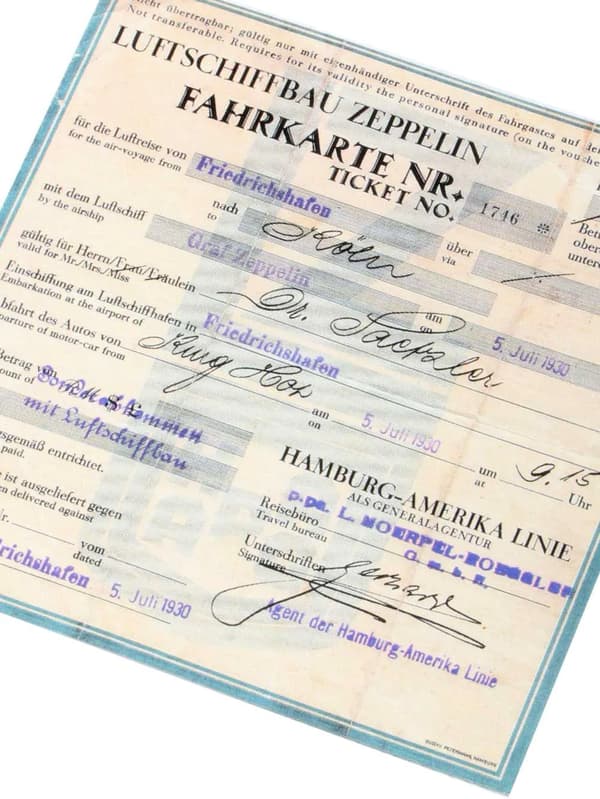 Nicht übertragbar; gültig nur mit eigenhändiger Unterschrift des Fahrgastes auf de
Not transferable. Requires for its validity the personal signature (on the vouche
LUFTSCHIFFBAU ZEPPELIN
FAHRKARTE NR.
TICKET NO. 1746 *
für die Luftreise von Friedrichshafen nach Köln über %
for the air-voyage from to via
Betr
ober
untere
mit dem Luftschiff Graf Zeppelin am 5. Juli 1930
by the airship on
gültig für Herrn/Frau/Fräulein Dr.
valid for Mr./Mrs./Miss
Einschiffung am Luftschiffhafen in Friedrichshafen
Embarkation at the airport of
bfahrt des Autos von am 5. Juli 1930 um 9.15 Uhr
parture of motor-car from on at
Betrag von RM
ount of
mit Luftschiffbau
sgemäß entrichtet.
paid.
HAMBURG-AMERIKA LINIE
ALS GENERALAGENTUR
e ist ausgeliefert gegen
en delivered against
Reisebüro
Travel bureau
G. m. b. H.
Nr. vom
dated
Unterschriften
Signature
richshafen 5. Juli 1930
Agent der Hamburg-Amerika Linie